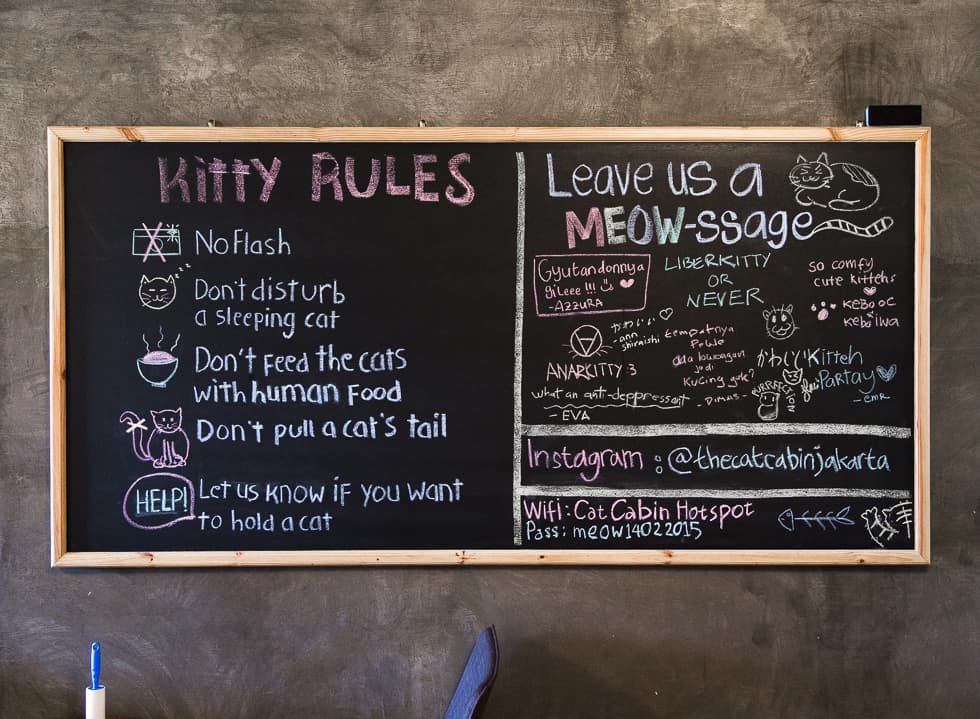 Kitty RULES
No Flash
Don't disturb
a sleeping cat
Don't Feed the cats
with human Food
Don't pull a cat's tail
HELP!
Let us know if you want
to hold a cat
Leave us a
MEOW-ssage
Gyutandonnya
gileee !!!
- AZZURA
LIBERKITTY
OR
NEVER
so comfy
cute kittehs
kebo oc
kebo iwa
かわいい
- ann
shiraishi
ANARKITTY 3
tempatnya
Pewe
ada lowongan
jadi
Kucing gak?
- Dimas -
かわいい
Kitteh
Partay
- emR
PURRFECT
NOW
what an anti-deppressant
- EVA
Instagram : @thecatcabinjakarta
Wifi: Cat Cabin Hotspot
Pass: meow14022015